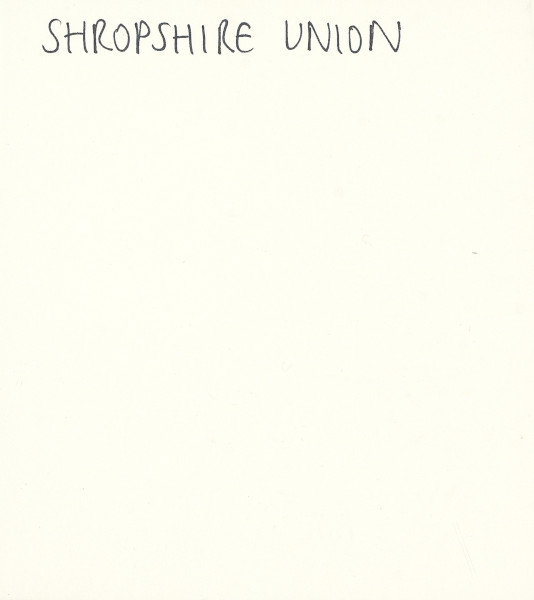 SHROPSHIRE UNION